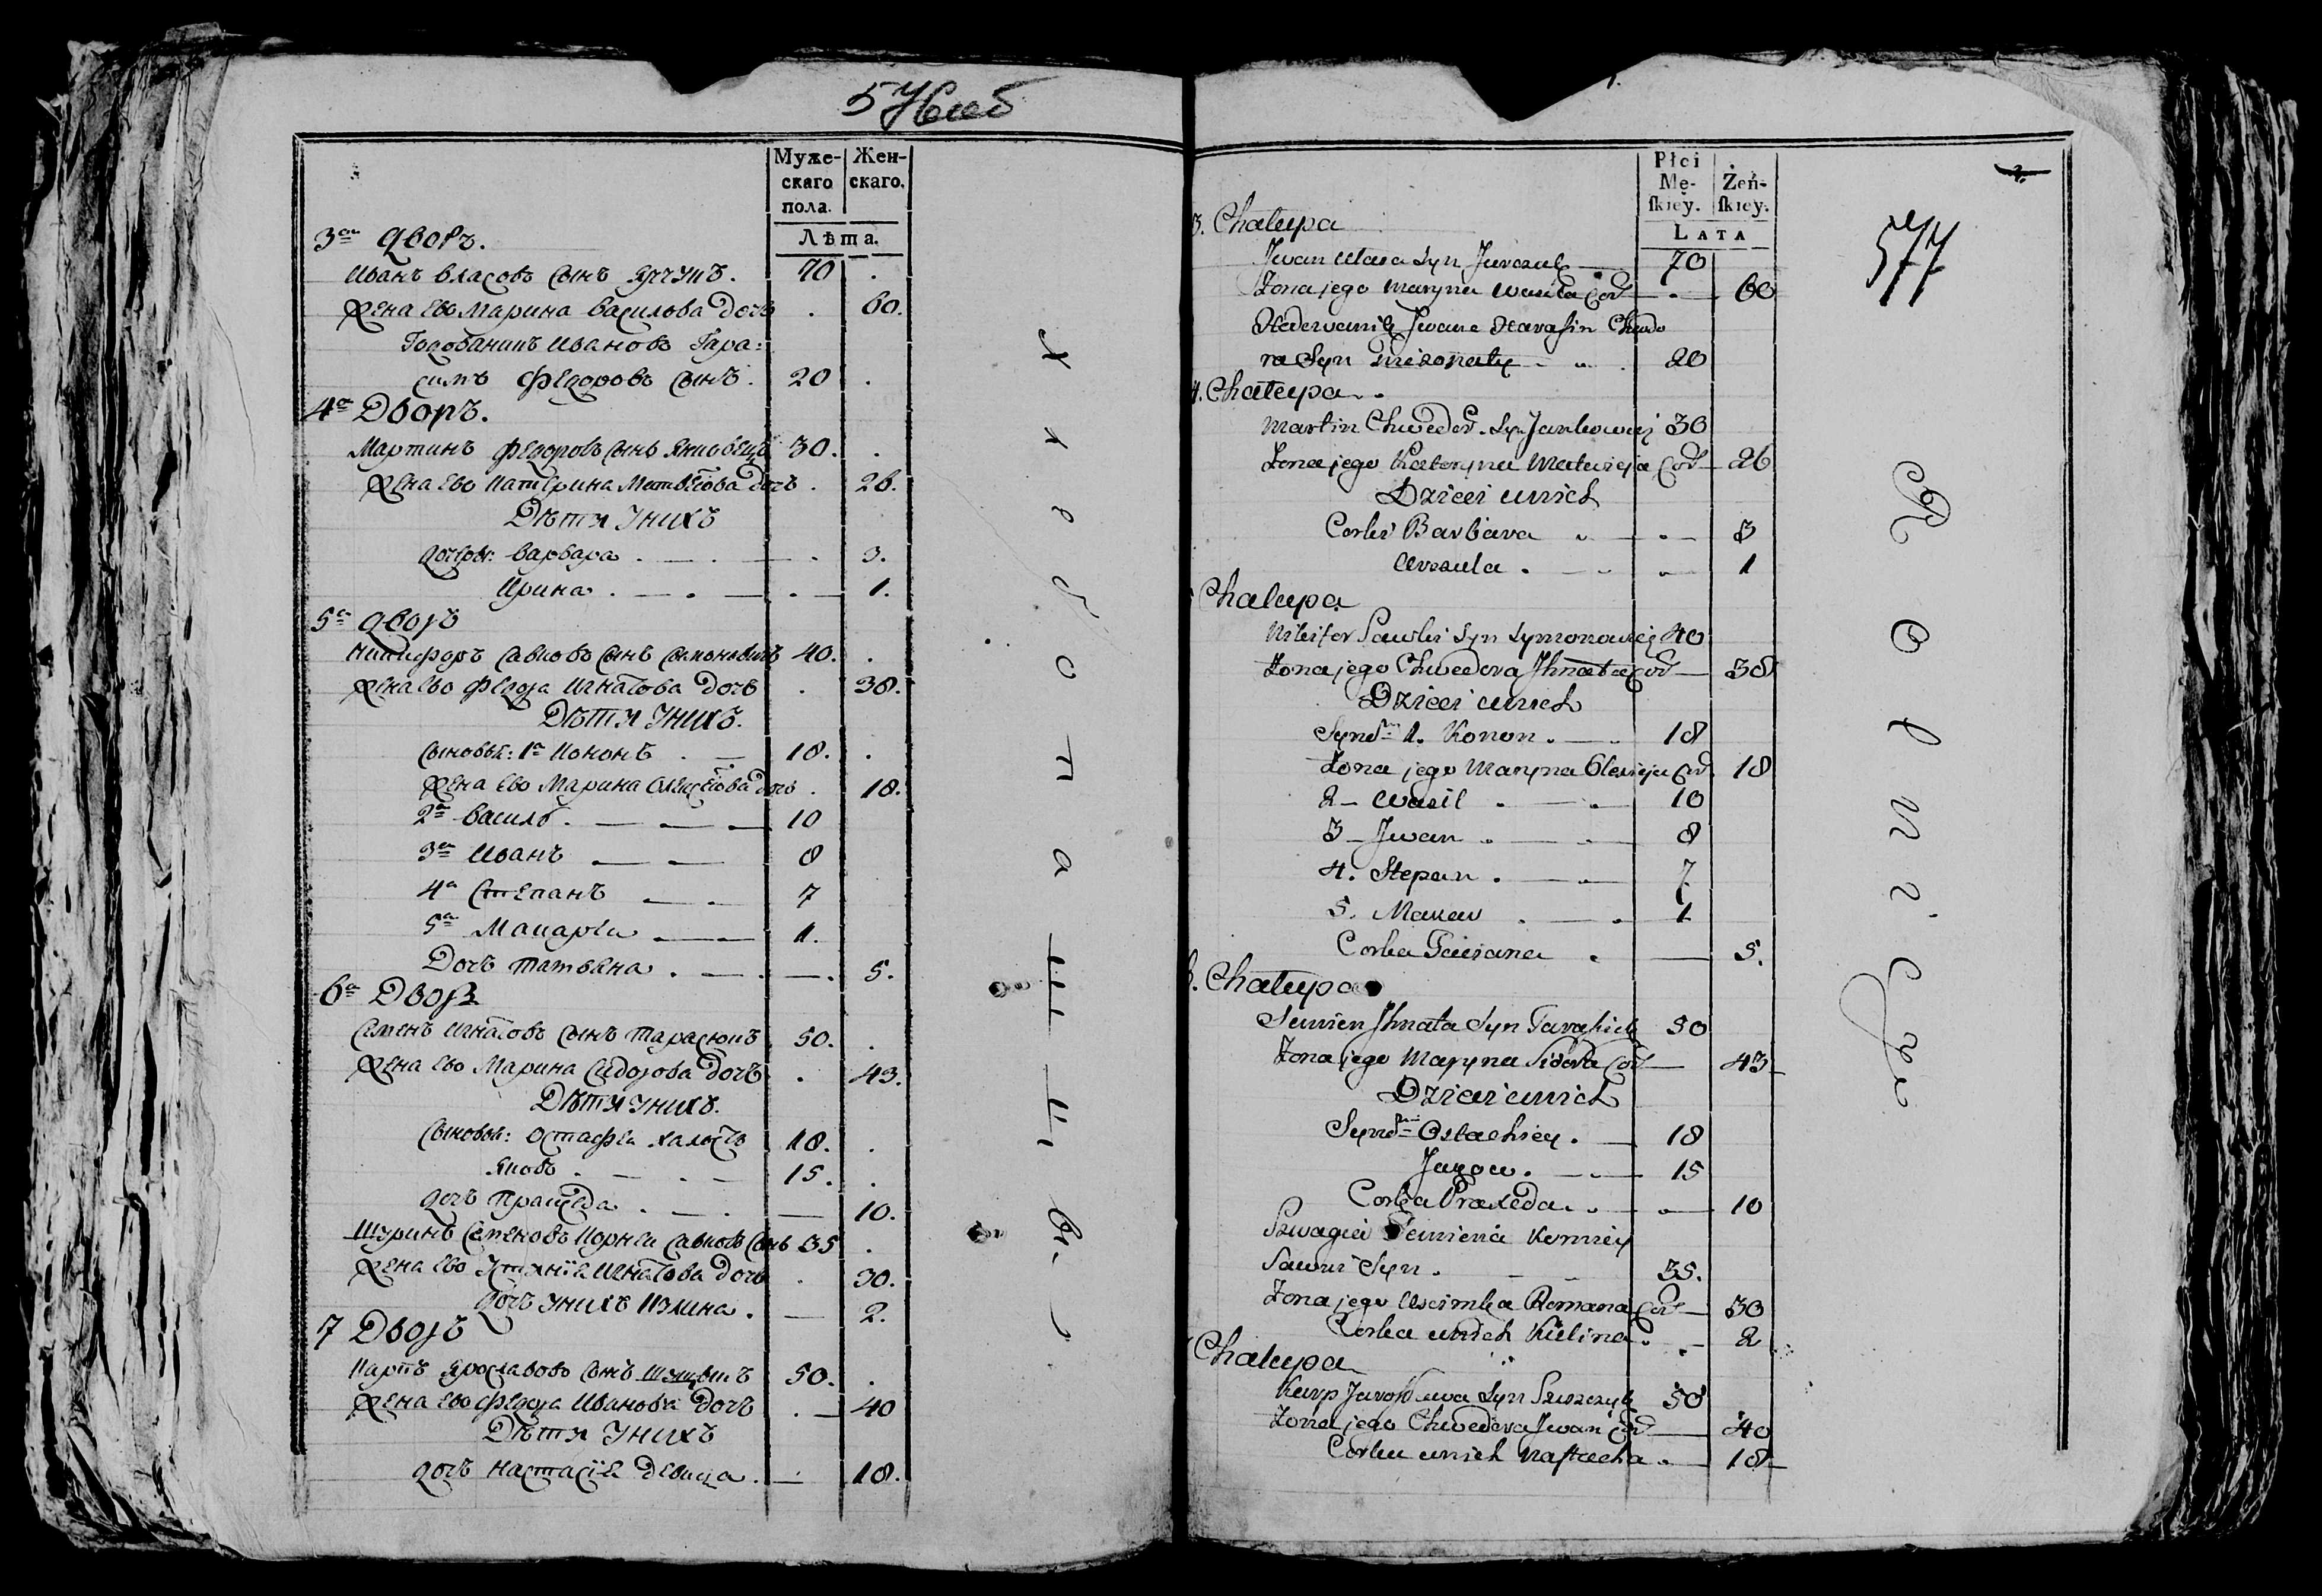 Муже-
скаго
пола.
Жен-
скаго.
Лѣта.
3й дворъ.
Иванъ Власовъ сынъ 70
жена ево Марина Василова дочь 60.
Ивановъ Гара:
симъ Федоровъ сынъ. 20
4й Дворъ.
Мартинъ Федоровъ сынъ 30.
жена ево Катерина Матвѣева дочь 26.
Дѣти у нихъ
дочери: Варвара 3.
Ирина 1.
5й дворъ
Никифоръ Савковъ сынъ Симоновичъ 40.
жена ево Федора Игнатова дочь 38.
Дѣти у нихъ.
сыновья: 1й Кононъ 18.
жена ево Марина Олексѣова дочь 18.
2й Василь 10
3й Иванъ 8
4й Степанъ 7
5й Макарѣй 1.
Дочь Татьяна 5.
6й Дворъ
Семенъ Игнатовъ сынъ Тарасюкъ 50.
жена ево Марина Сидорова дочь 43.
Дѣти у нихъ.
сыновья: Остафѣй 18.
Яковъ 15.
дочь Праксѣда 10.
Шуринъ Семеновъ Корнѣй Савковъ сынъ 35
жена ево Игнатова дочь 30.
дочь у нихъ Кулина. 2.
7 Дворъ
Карпъ Ярославовъ сынъ 50.
жена ево Федора Иванова дочь 40
Дѣти у нихъ
дочь Настасія девица 18.
Хлебопашцы
Płci
Mę-
ſkiey.
Żeń-
ſkiey.
LATA
577
3. Chałupa
Jwan Własa Syn 70
Żona jego Maryna Wasila Cor 60
Jwana Harasin Chwedo
ra Syn nieżonaty 20
4. Chałupa
Martin Chwedor. Syn 30
Żona jego Kateryna Matwieja Cor 26
Dzieci unich
Corki Barbara 3
Urszula 1
Chałupa
Nikifor Sawki Syn Symonowicz 40
Żona jego Chwedora Jhnata Cor 38
Dzieci unich
1. Konon 18
Żona jego Maryna Olexieja Cor. 18
2 Wasil 10
3 Jwan 8
4. Stepan 7
5. Makar 1
Corka Taciana 5.
6. Chałupa
Semien Jhnata Syn Taraſiuk 50
Żona jego Maryna Sidora Cor 43
Dzieci unich
Ostachiey 18
Jakow 15
Corka Praxeda 10
Szwagier Semiena Korniey
Sawki Syn 35.
Żona jego Romana Cor 30
Corka unich Kulina 2
Chałupa
Karp Jarosława Syn Szuszczyk 50
Żona jego Chwedora Jwan Cor 40
Corka unich Naſtazia 18
Rolnicy